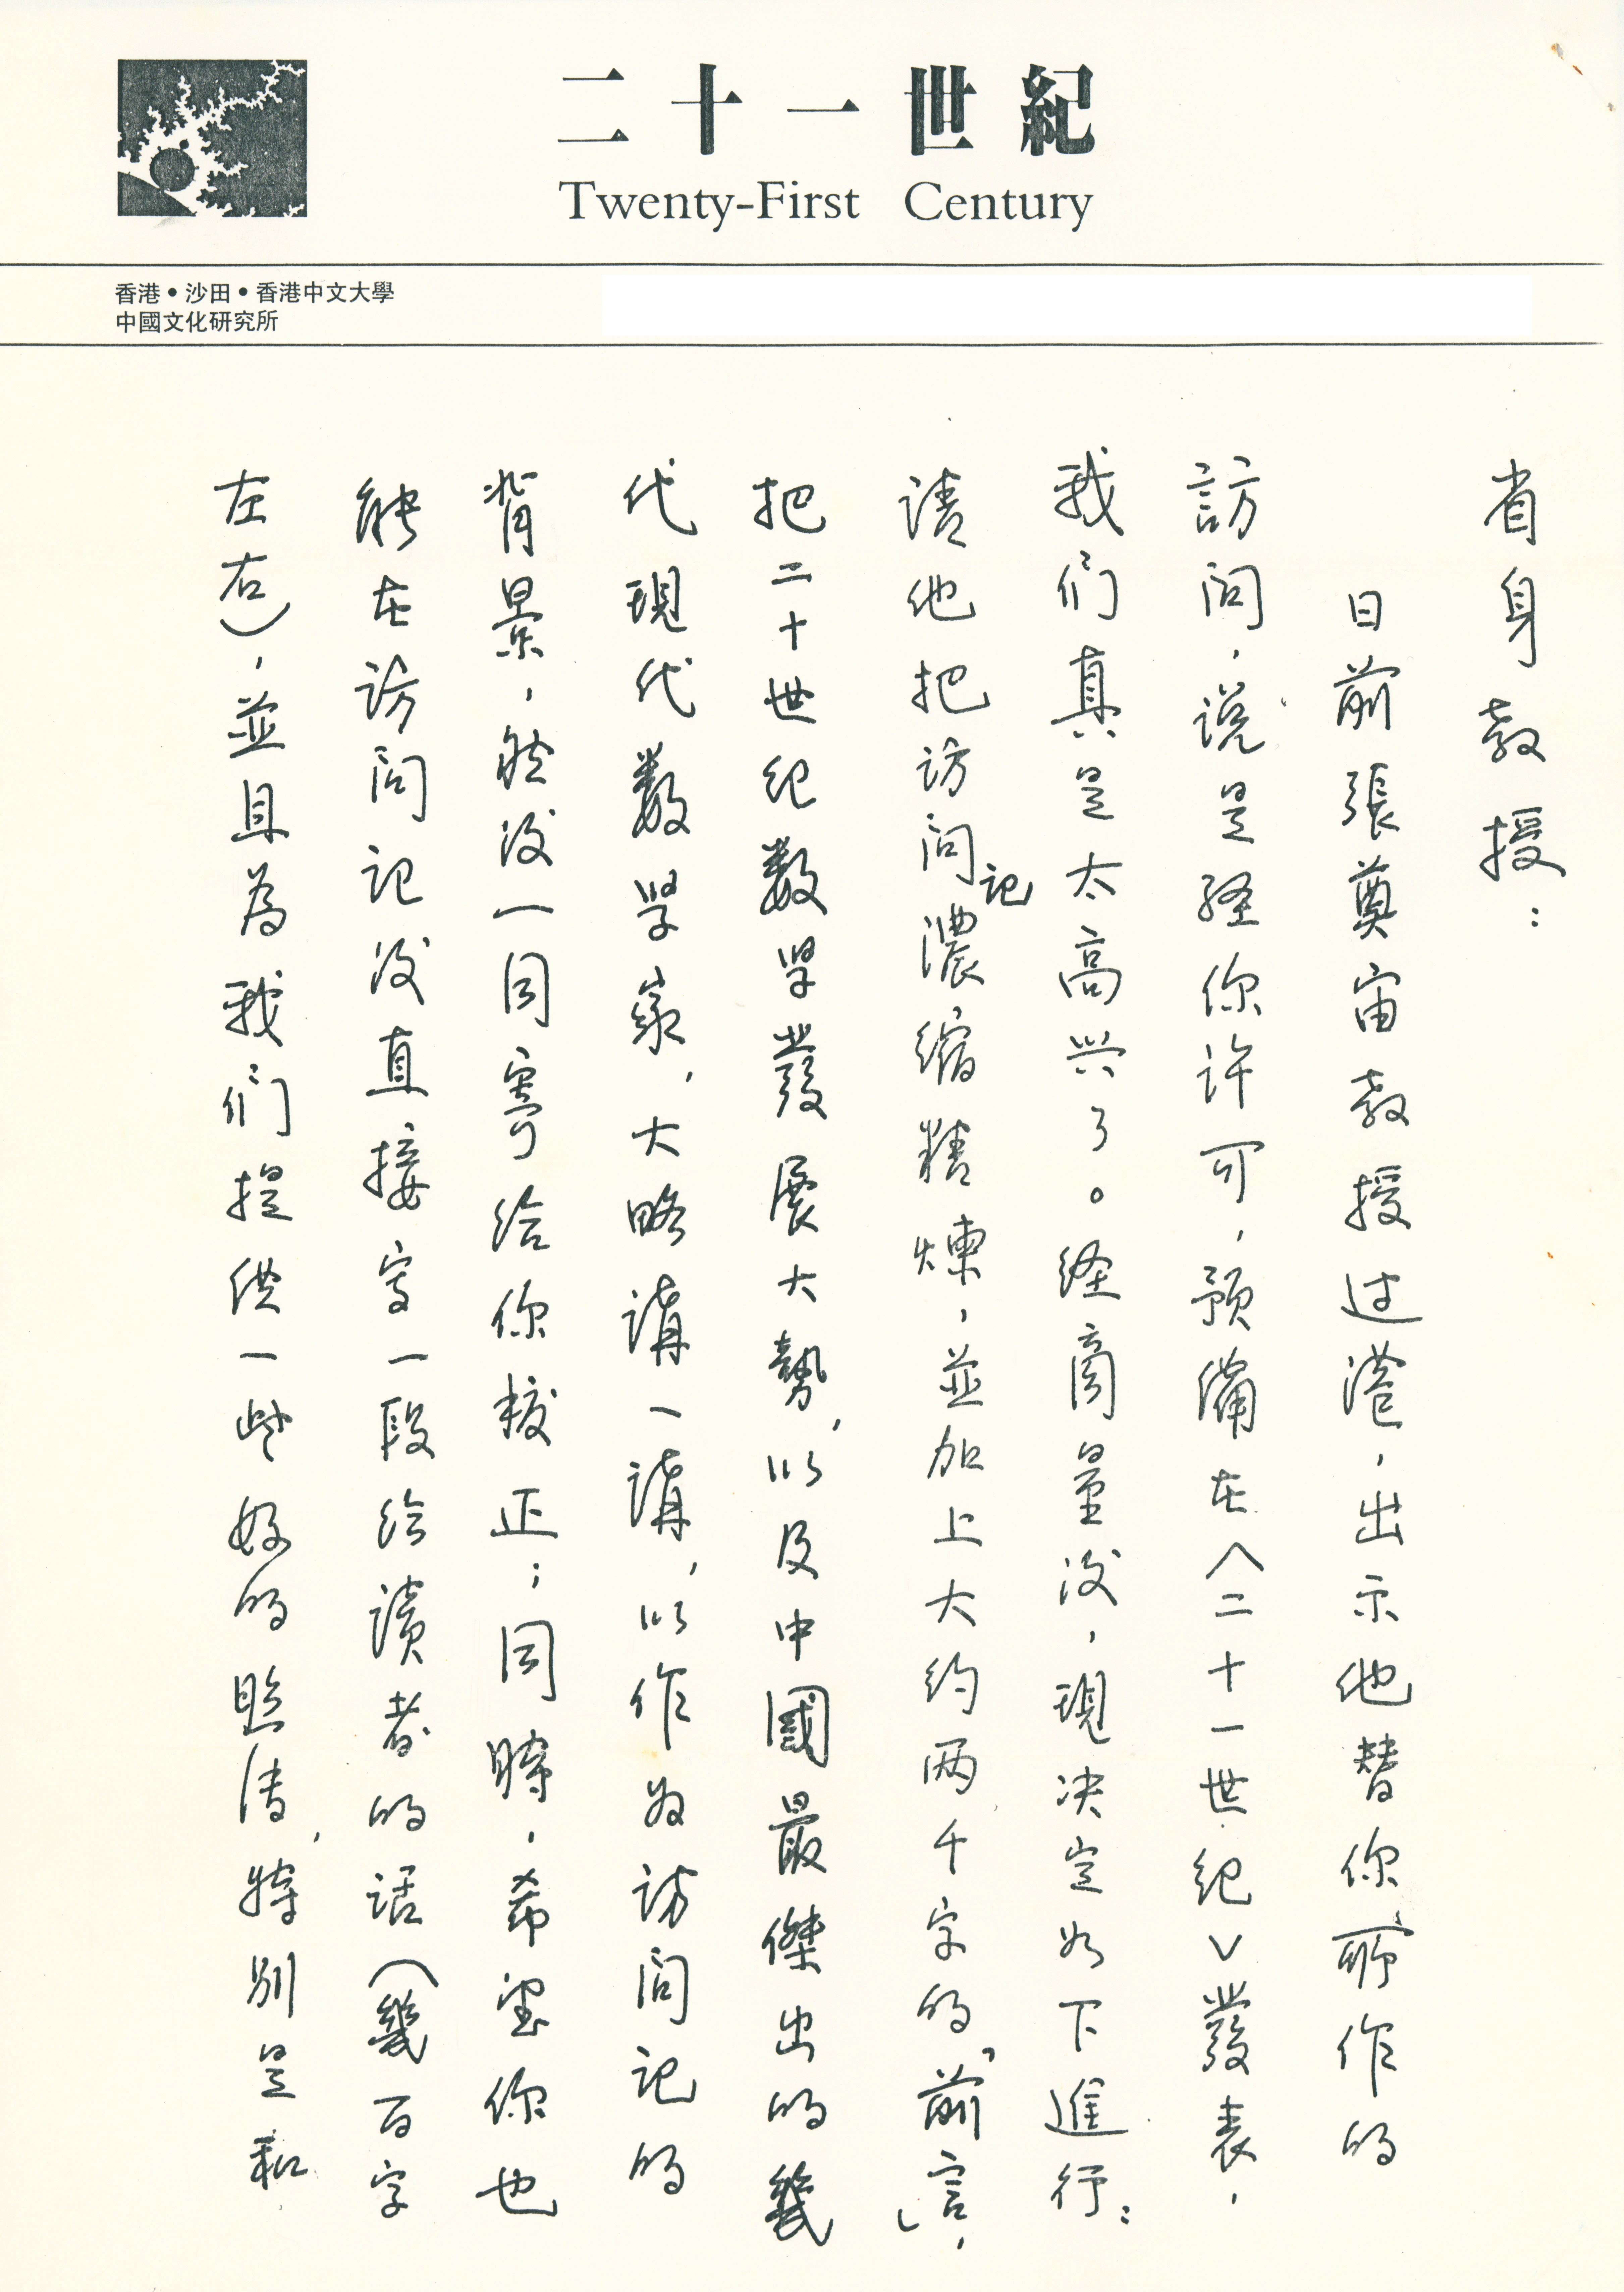 二十一世紀
Twenty-First Century
香港•沙田•香港中文大學
中國文化研究所
省身教授：
日前張奠宙教授过港，出示他替你所作的
訪问，说是经你许可，预備在〈二十一世纪〉發表，
我们真是太高兴了。经商量後，現决定如下進行：
请他把访问记濃缩精煉，並加上大约两千字的「前言」，
把二十世纪数学發展大势，以及中國最傑出的幾
代現代数学家，大略講一講，以作为访问记的
背景，然後一同寄给你校正；同時，希望你也
能在访问记後直接寫一段给讀者的话（幾百字
左右），並且為我们提供一些好的照片，特别是和